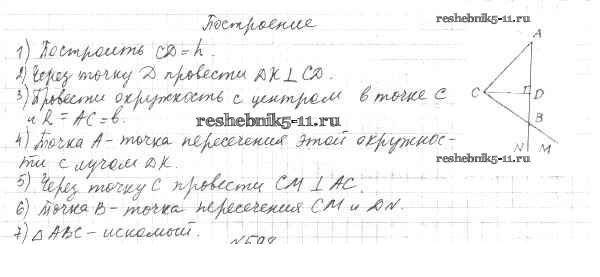 Построение
reshebnik5-11.ru
1) Построить CD = h.
2) Через точку D провести DK ⊥ CD.
3) Провести окружность с центром в точке C
и R = AC = b.
reshebnik5-11.ru
4) Точка A - точка пересечения этой окружнос-
ти с лучом DK.
5) Через точку C провести CM ⊥ AC.
6) Точка B - точка пересечения CM и DN.
7) △ ABC - искомый.
N598
A
C
D
B
N
M
reshebnik5-11.ru